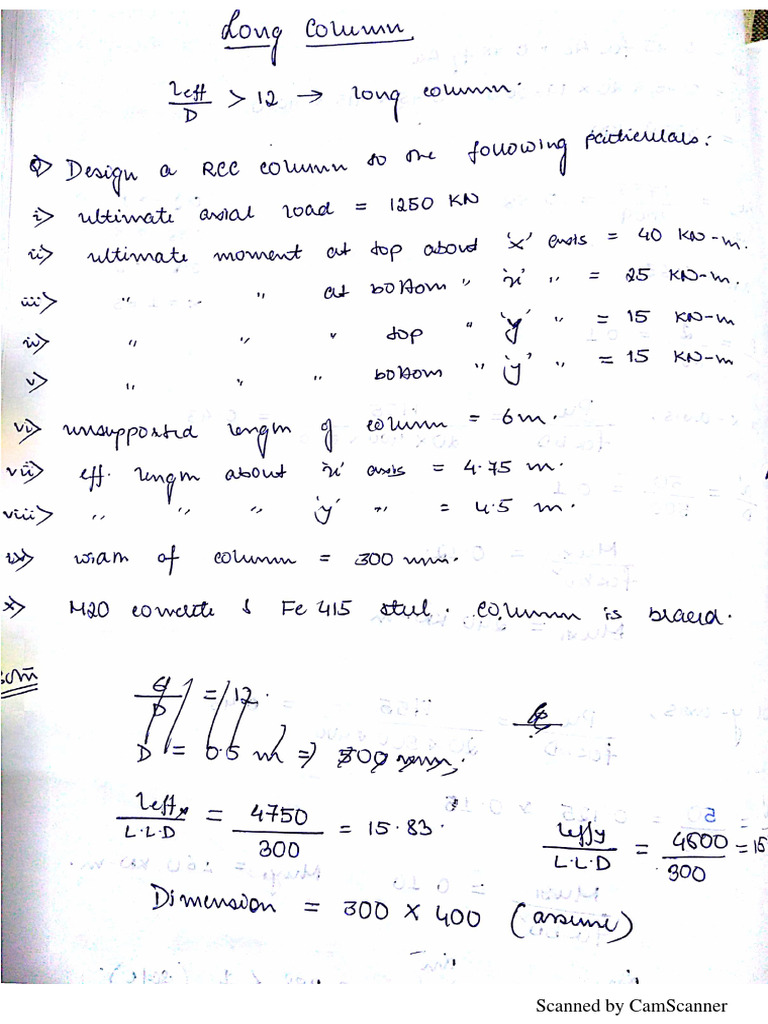 Long Column
leff/D > 12 → long column.
Q> Design a RCC column to the following particulars:
i> ultimate axial load = 1250 KN
ii> ultimate moment at top about 'x' axis = 40 KN-m.
iii> " " at bottom " 'x' " = 25 KN-m.
iv> " " " top " 'y' " = 15 KN-m
v> " " " bottom " 'y' " = 15 KN-m
vi> unsupported length of column = 6m.
vii> eff. length about 'x' axis = 4.75 m.
viii> " " " 'y' " = 4.5 m.
ix> width of column = 300 mm.
x> M20 concrete & Fe 415 steel. column is braced.
Soln
= 12.
D = 0.5 m => 500 mm.
leffx/L.L.D = 4750/300 = 15.83.
leffy/L.L.D = 4500/300 = 15
Dimension = 300 × 400 (assume)
Scanned by CamScanner